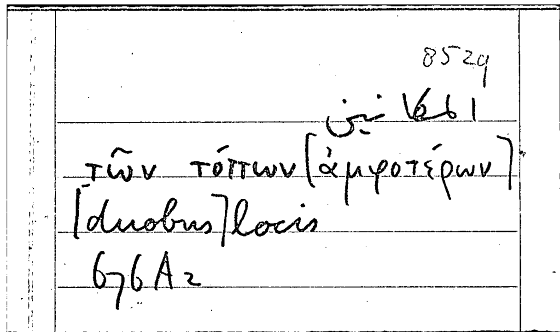 8529
τῶν τόπων [ἀμφοτέρων]
[duobus] locis
676 A 2